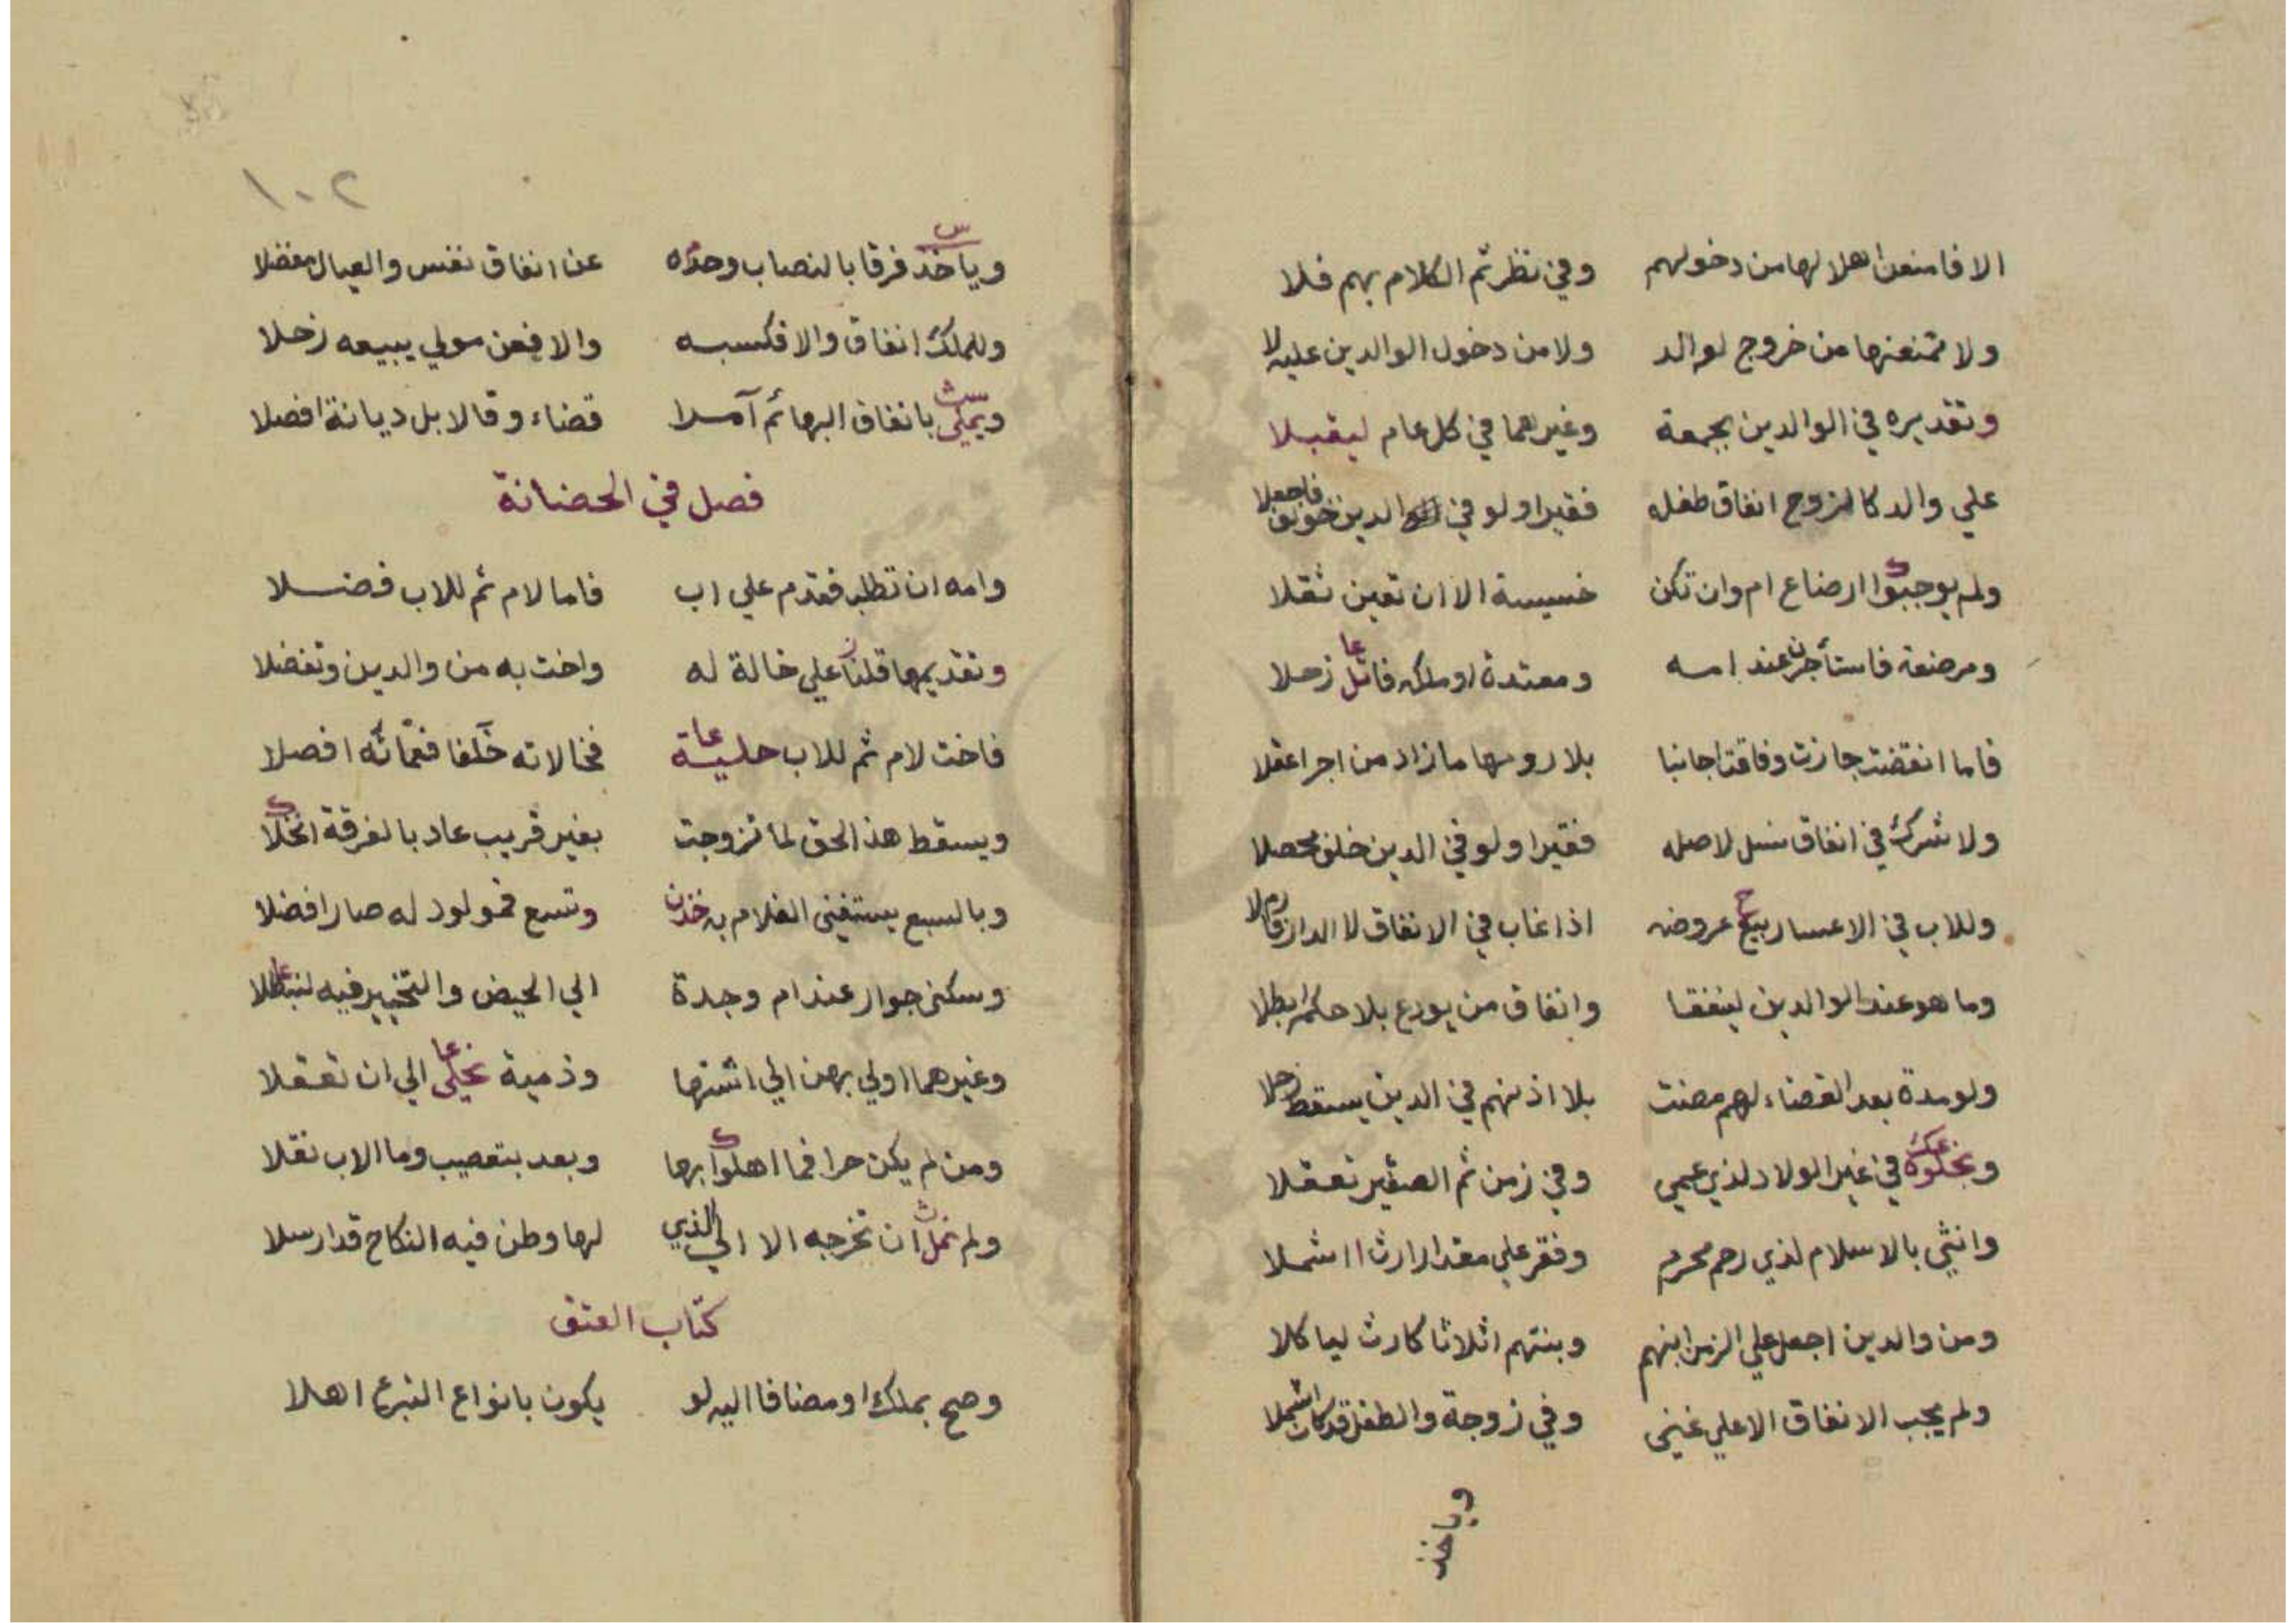 الا فامنعن اهلا لها من دخولهم وفي نظر ثم الكلام بهم فلا
ولا تمنعنها من خروج لوالد ولا من دخول الوالدين عليه لا
وتقديره في الوالدين بجمعة وغيرهما في كل عام ليقبلا
علي والد كالزوج انفاق طفله فقيرا ولو في الدين خولف فاجعلا
ولم يوجبوا ارضاع ام وان تكن خسيسة الا ان تعين ثقلا
ومرضعة فاستأجرن عند امه ومعتدة او ملكه قائل زحلا
فاما انقضت جازت وفاقت اجانبا بلا روسها ما زاد من اجر اعقلا
ولا شرك في انفاق نسل لاصله فقيرا ولو في الدين خلف محصلا
وللاب في الاعسار بيع عروضه اذا غاب في الانفاق لا الدار
وما هو عند الوالدين لينفقا وانفاق من يودع بلا حكم ابطلا
ولو مدة بعد القضاء لهم مضت بلا اذنهم في الدين يسقط زحلا
في غير الولاد لذي عمي وفي زمن ثم الصغير تعقلا
وانثي بالاسلام لذي رحم محرم وفقر علي مقدار ارث اشملا
ومن والدين اجعل علي الزمن ابنهم وبنتهم اثلاثا كارث لياكلا
ولم يجب الانفاق الا علي غني وفي زوجة والطفل قد كان اشملا
وياخذ
١٠٢
وياخذ فرقا بالنصاب وحده عن انفاق نفس والعيال مفضلا
وللملك انفاق والا فكسبه والا فعن مولي يبيعه زحلا
ويملي بانفاق البهائم آمرا قضاء وقالا بل ديانة افصلا
فصل في الحضانة
وامه ان تطلب فقدم علي اب فاما لام ثم للاب فضلا
وتقديمها قلنا علي خالة له واخت به من والدين وتفضلا
فاخت لام ثم للاب حلية فخالاته خلفا فعماته افصلا
ويسقط هذا الحق لما تزوجت بغير قريب عاد بالفرقة انجلا
وبالسبع يستغني الغلام به خذن وتسع فمولود له صار افضلا
وسكني جوار عند ام وجدة الي الحيض والتخيير فيه
وغيرهما اولي بهن الي اشتها وذمية نحلي الي ان تعقلا
ومن لم يكن حرا فما اهلوا بها وبعد بتعصيب وما الاب نقلا
ولم نمل ان تخرجه الا الي الذي لها وطن فيه النكاح قد ارسلا
كتاب العتق
وصح بملك او مضافا اليه لو يكون بانواع التبرع اهلا